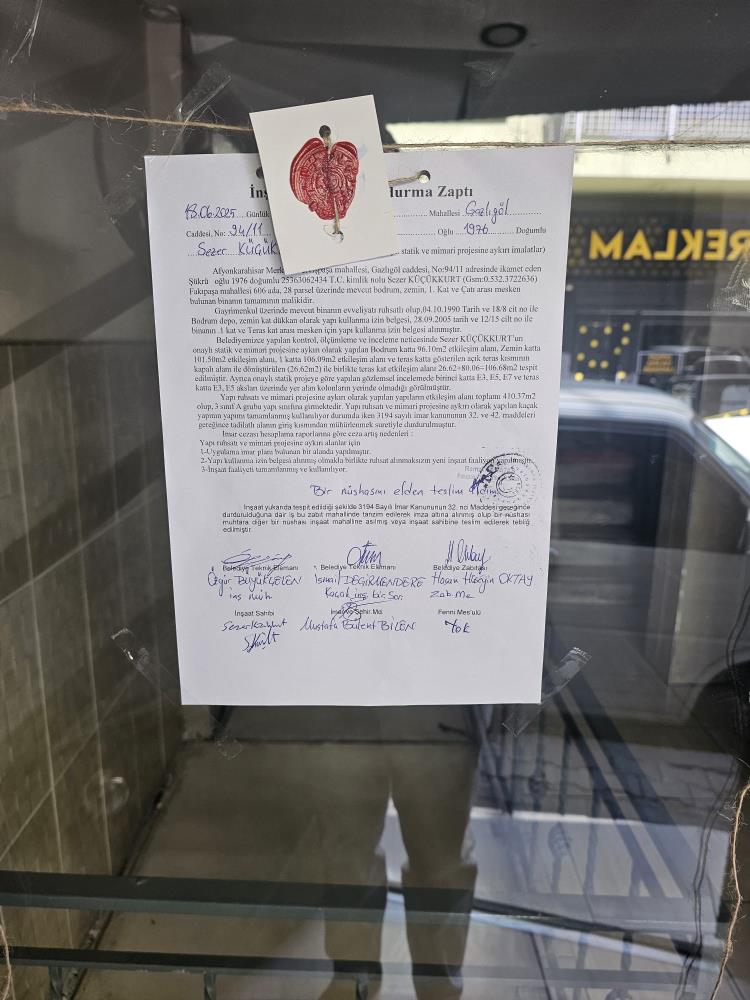 REKLAM
İnş durma Zaptı
18.06.2025 Günlük Mahallesi Gazlıgöl
Caddesi, No: 94/11 Oğlu 1976 Doğumlu
Sezer KÜÇÜK statik ve mimari projesine aykırı imalatlar)
Afyonkarahisar Merk paşa mahallesi, Gazlıgöl caddesi, No:94/11 adresinde ikamet eden
Şükrü oğlu 1976 doğumlu 25363062434 T.C. kimlik nolu Sezer KÜÇÜKKURT (Gsm:0.532.3722636)
Fakıpaşa mahallesi 606 ada, 28 parsel üzerinde mevcut bodrum, zemin, 1. Kat ve Çatı arası mesken
bulunan binanın tamamının malikidir.
Gayrimenkul üzerinde mevcut binanın evveliyatı ruhsatlı olup,04.10.1990 Tarih ve 18/8 cit no ile
Bodrum depo, zemin kat dükkan olarak yapı kullanma izin belgesi, 28.09.2005 tarih ve 12/15 cilt no ile
binanın .1 kat ve Teras kat arası mesken için yapı kullanma izin belgesi almıştır.
Belediyemizce yapılan kontrol, ölçümleme ve inceleme neticesinde Sezer KÜÇÜKKURT'un
onaylı statik ve mimari projesine aykırı olarak yapılan Bodrum katta 96.10m2 etkileşim alanı, Zemin katta
101.50m2 etkileşim alanı, 1 katta 106.09m2 etkileşim alanı ve teras katta gösterilen açık teras kısmının
kapalı alana ile dönüştürülen (26.62m2) ile birlikte teras kat etkileşim alanı 26.62+80.06=106.68m2 tespit
edilmiştir. Ayrıca onaylı statik projeye göre yapılan gözlemsel incelemede birinci katta E3, E5, E7 ve teras
katta E3, E5 aksları üzerinde yer alan kolonların yerinde olmadığı görülmüştür.
Yapı ruhsatı ve mimari projesine aykırı olarak yapılan yapıların etkileşim alanı toplamı 410.37m2
olup, 3 sınıf A grubu yapı sınıfına girmektedir. Yapı ruhsatı ve mimari projesine aykırı olarak yapılan kaçak
yapının yapımı tamamlanmış kullanılıyor durumda iken 3194 sayılı imar kanununun 32. ve 42. maddeleri
gereğince tadilatlı alanın giriş kısmından mühürlenmek suretiyle durdurulmuştur.
İmar cezası hesaplama raporlarına göre ceza artış nedenleri :
Yapı ruhsatı ve mimari projesine aykırı alanlar için
1-Uygulama imar planı bulunan bir alanda yapılmıştır.
2-Yapı kullanma izin belgesi alınmış olmakla birlikte ruhsat alınmaksızın yeni inşaat faaliyeti yapılmıştır.
3-İnşai faaliyeti tamamlanmış ve kullanılıyor.
Bir nüshasını elden teslim aldım
İnşaat yukarıda tespit edildiği şekilde 3194 Sayılı İmar Kanununun 32. nci Maddesi gereğince
durdurulduğuna dair iş bu zabıt mahallinde tanzim edilerek imza altına alınmış olup bir nüshası
muhtara diğer bir nüshası inşaat mahalline asılmış veya inşaat sahibine teslim edilerek tebliğ
edilmiştir.
Belediye Teknik Elemanı Belediye Teknik Elemanı Belediye Zabıtası
Özgür BÜYÜKÇELEN İsmail DEĞİRMENDERE Hasan Hüseyin OKTAY
inş müh. Kaçak inş. bir. Sor. Zab. Me
İnşaat Sahibi İmar ve Şehir Md. Fenni Mes'ulü
Sezer Küçükkurt Mustafa Bülent BİLEN Yok